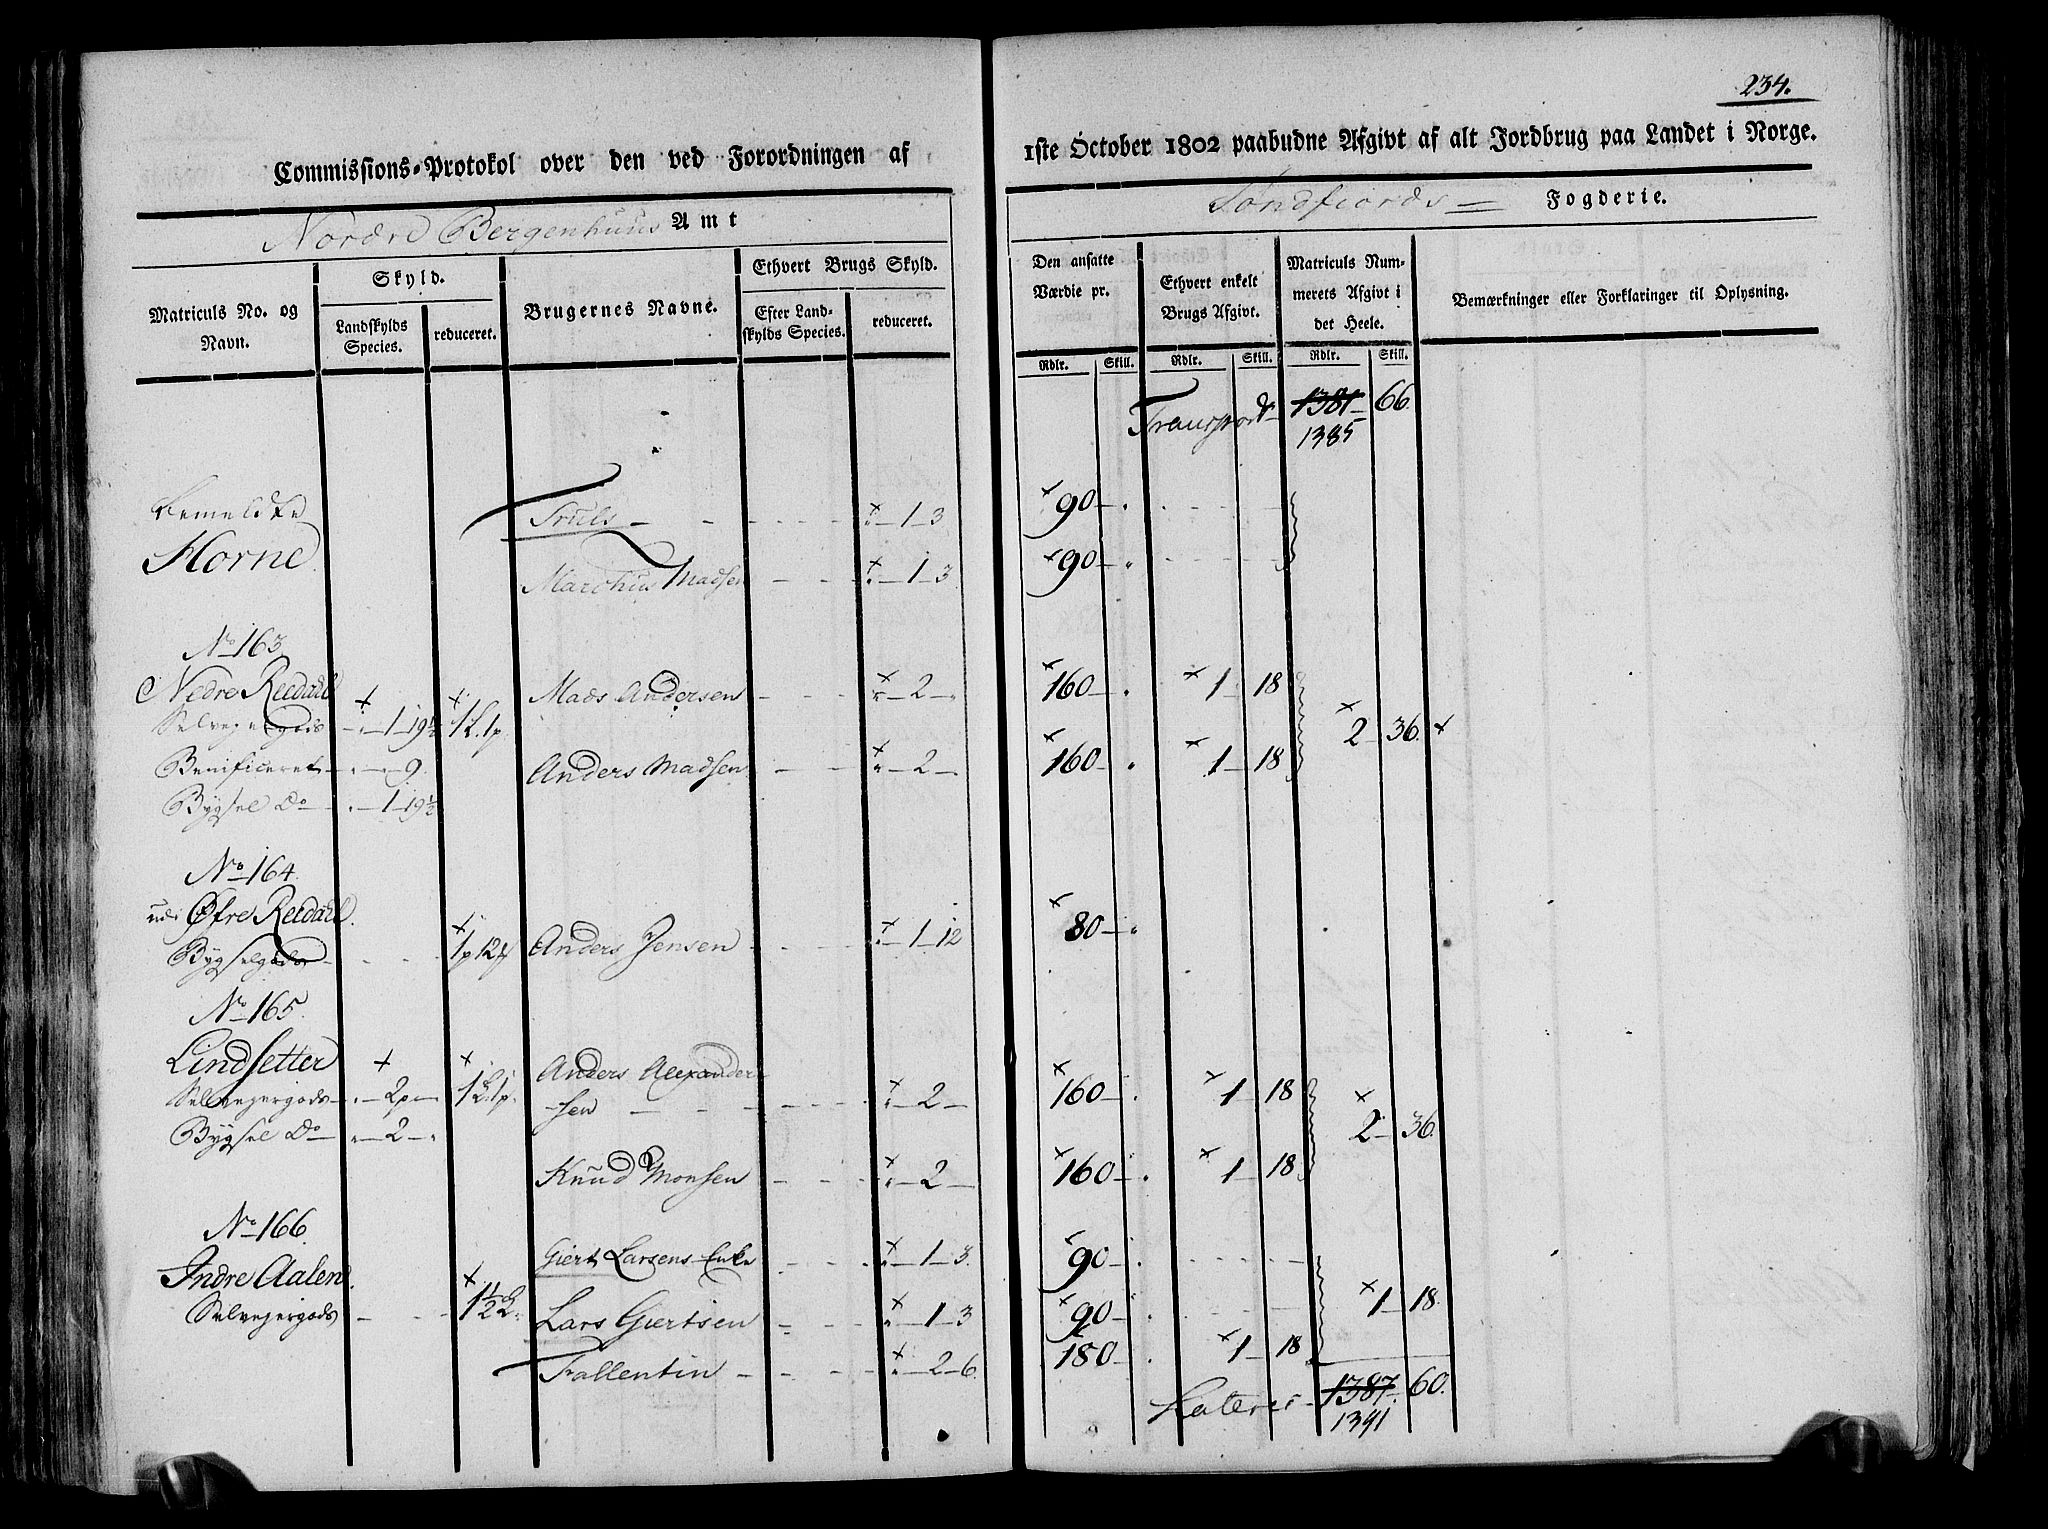 234.
Commissions-Protokol over den ved Forordningen af 1ste October 1802 paabudne Afgivt af alt Jordbrug paa Landet i Norge.
Nordre Bergenhuus Amt
Søndfiords Fogderie.
Matriculs No. og Navn.
Skyld.
Landskylds Species.
reduceret.
Brugernes Navne.
Ethvert Brugs Skyld.
Efter Landskylds Species.
reduceret.
Den ansatte Værdie pr.
Rdlr. Skill.
Ethvert enkelt Brugs Afgivt.
Rdlr. Skill.
Matriculs Nummerets Afgivt i det Heele.
Rdlr. Skill.
Bemærkninger eller Forklaringer til Oplysning.
Transport 1381 66.
1385
Bemeldte Truls — 1 — 3 90 —
Horne. Marchus Madsen — 1 — 3 90 —
No 163.
Nedre Reedahl Mads Andersen — 2 — 160 — 1 — 18
Selvejergods — 1 — 19½ 1 L. 1 p. 2 — 36.
Benificeret — 9. Anders Madsen — 2 — 160 — 1 — 18
Bygsel Do — 1 — 19½
No 164.
udi Øfre Reedahl.
Bygselgods 1 p 12 Anders Jensen — 1 — 12 80 —
No 165.
Lindsetter Anders Alexander-
Selvejergods — 2 p — 1 L. 1 p. sen — 2 — 160 — 1 — 18
Bygsel Do — 2 — 2 — 36.
Knud Monsen — 2 — 160 — 1 — 18
No 166.
Indre Aalen. Giert Larsens Enke — 1 — 3. 90 —
Selvejergods 1½ L. Lars Giertsen — 1 — 3 90 — 1 — 18.
Fallentin — 2 — 6. 180 — 1 — 18
Lateris 1387 60.
1391